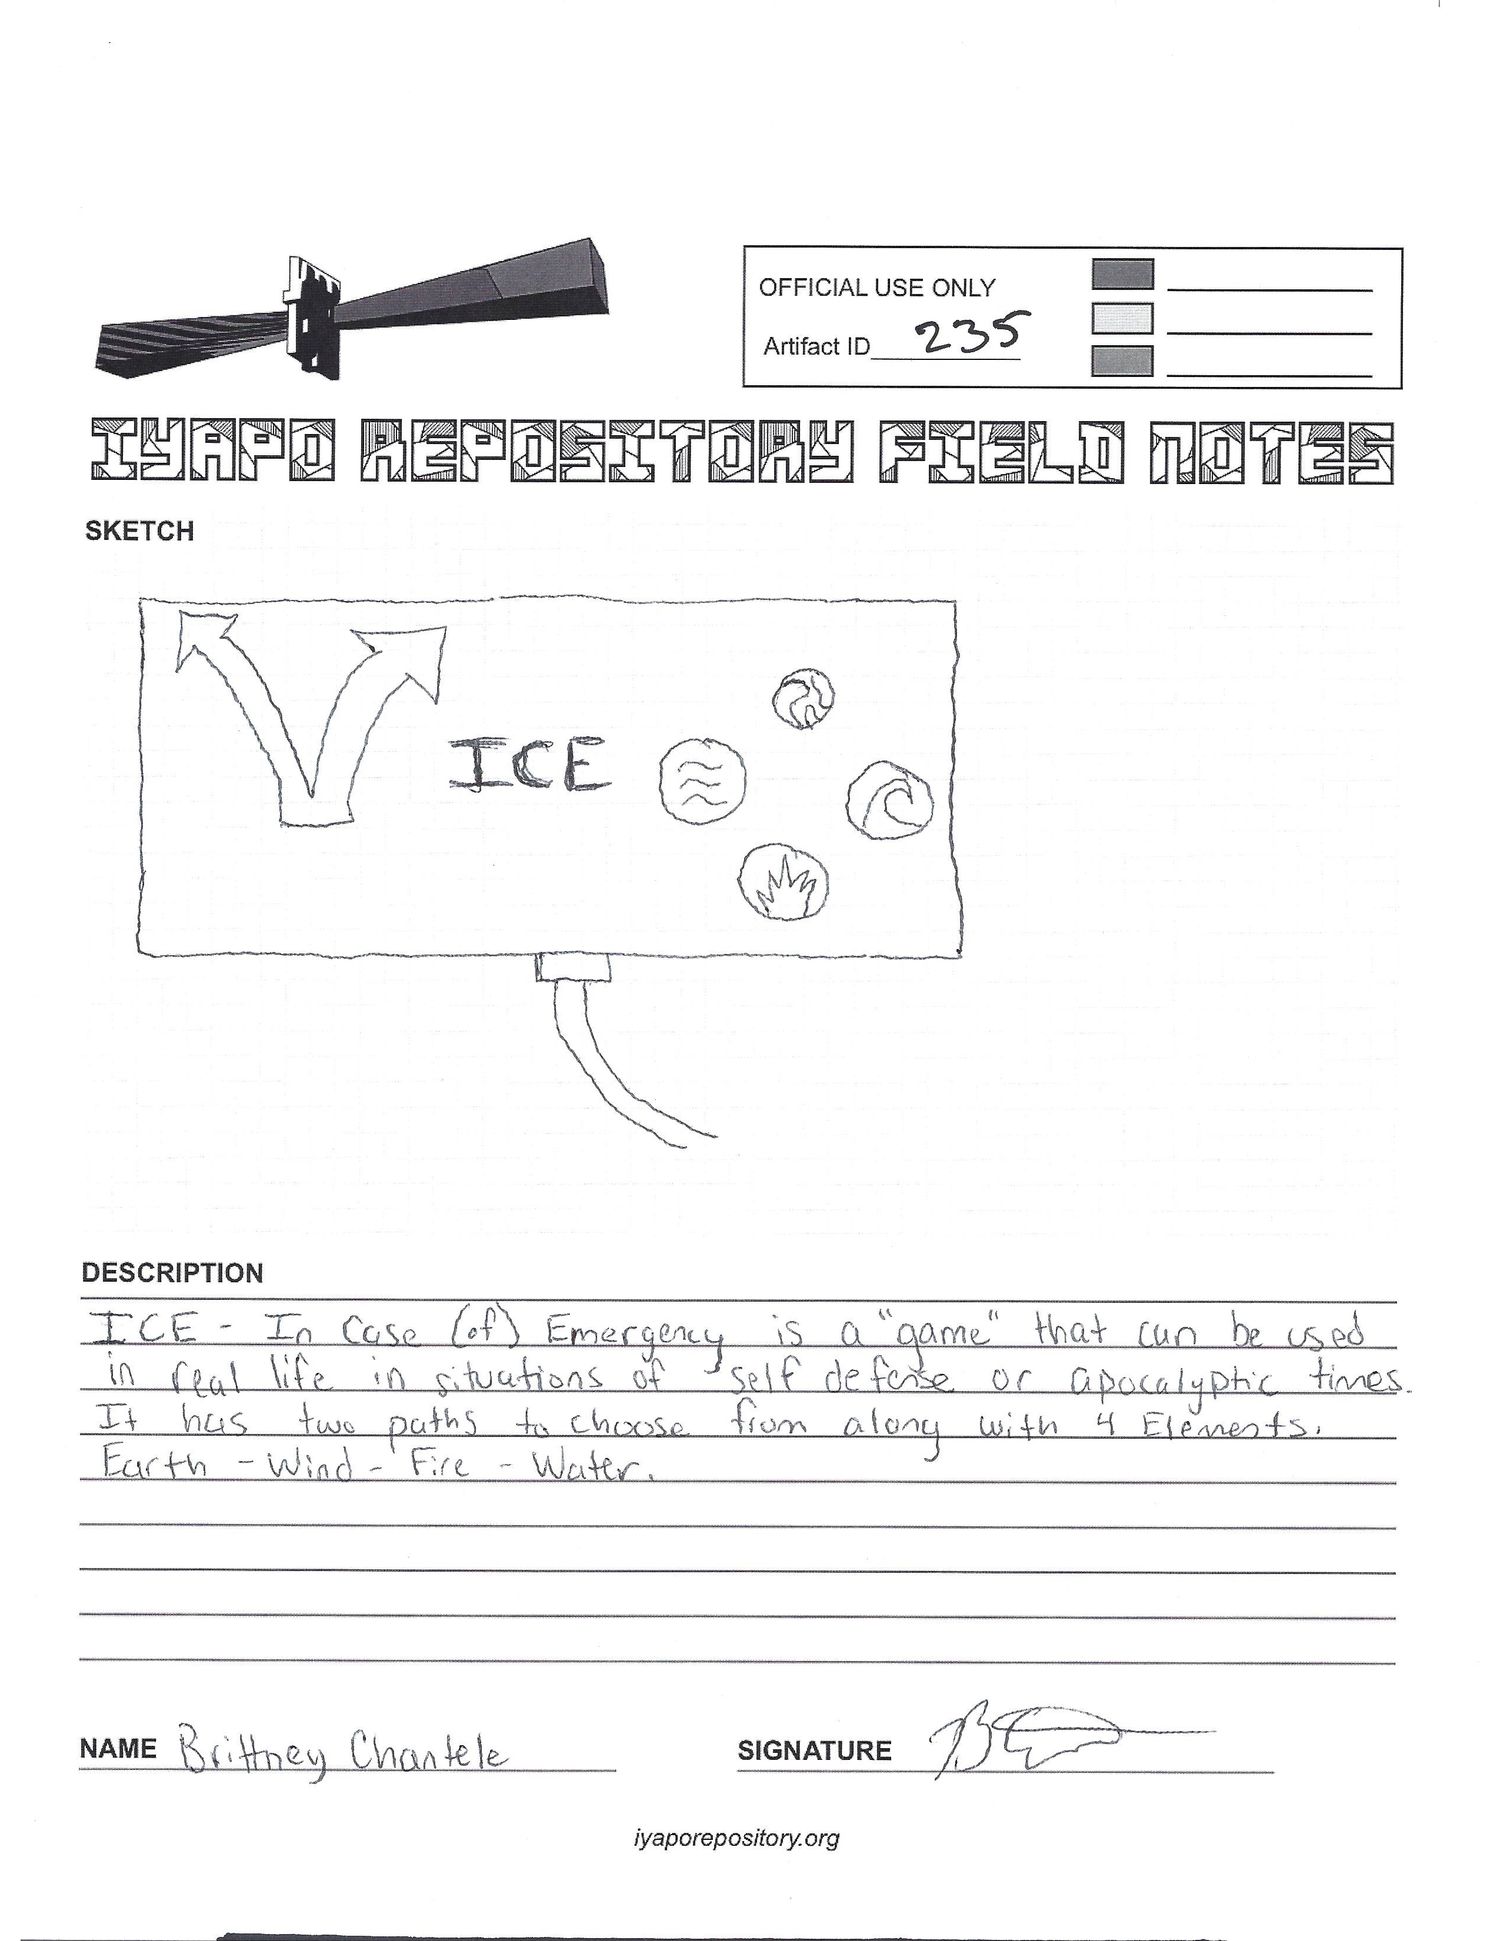 OFFICIAL USE ONLY
Artifact ID 235
IYAPO REPOSITORY FIELD NOTES
SKETCH
ICE
DESCRIPTION
ICE - In Case (of) Emergency is a "game" that can be used
in real life in situations of self defense or apocalyptic times.
It has two paths to choose from along with 4 Elements.
Earth - Wind - Fire - Water.
NAME Brittney Chantele
SIGNATURE
iyaporepository.org